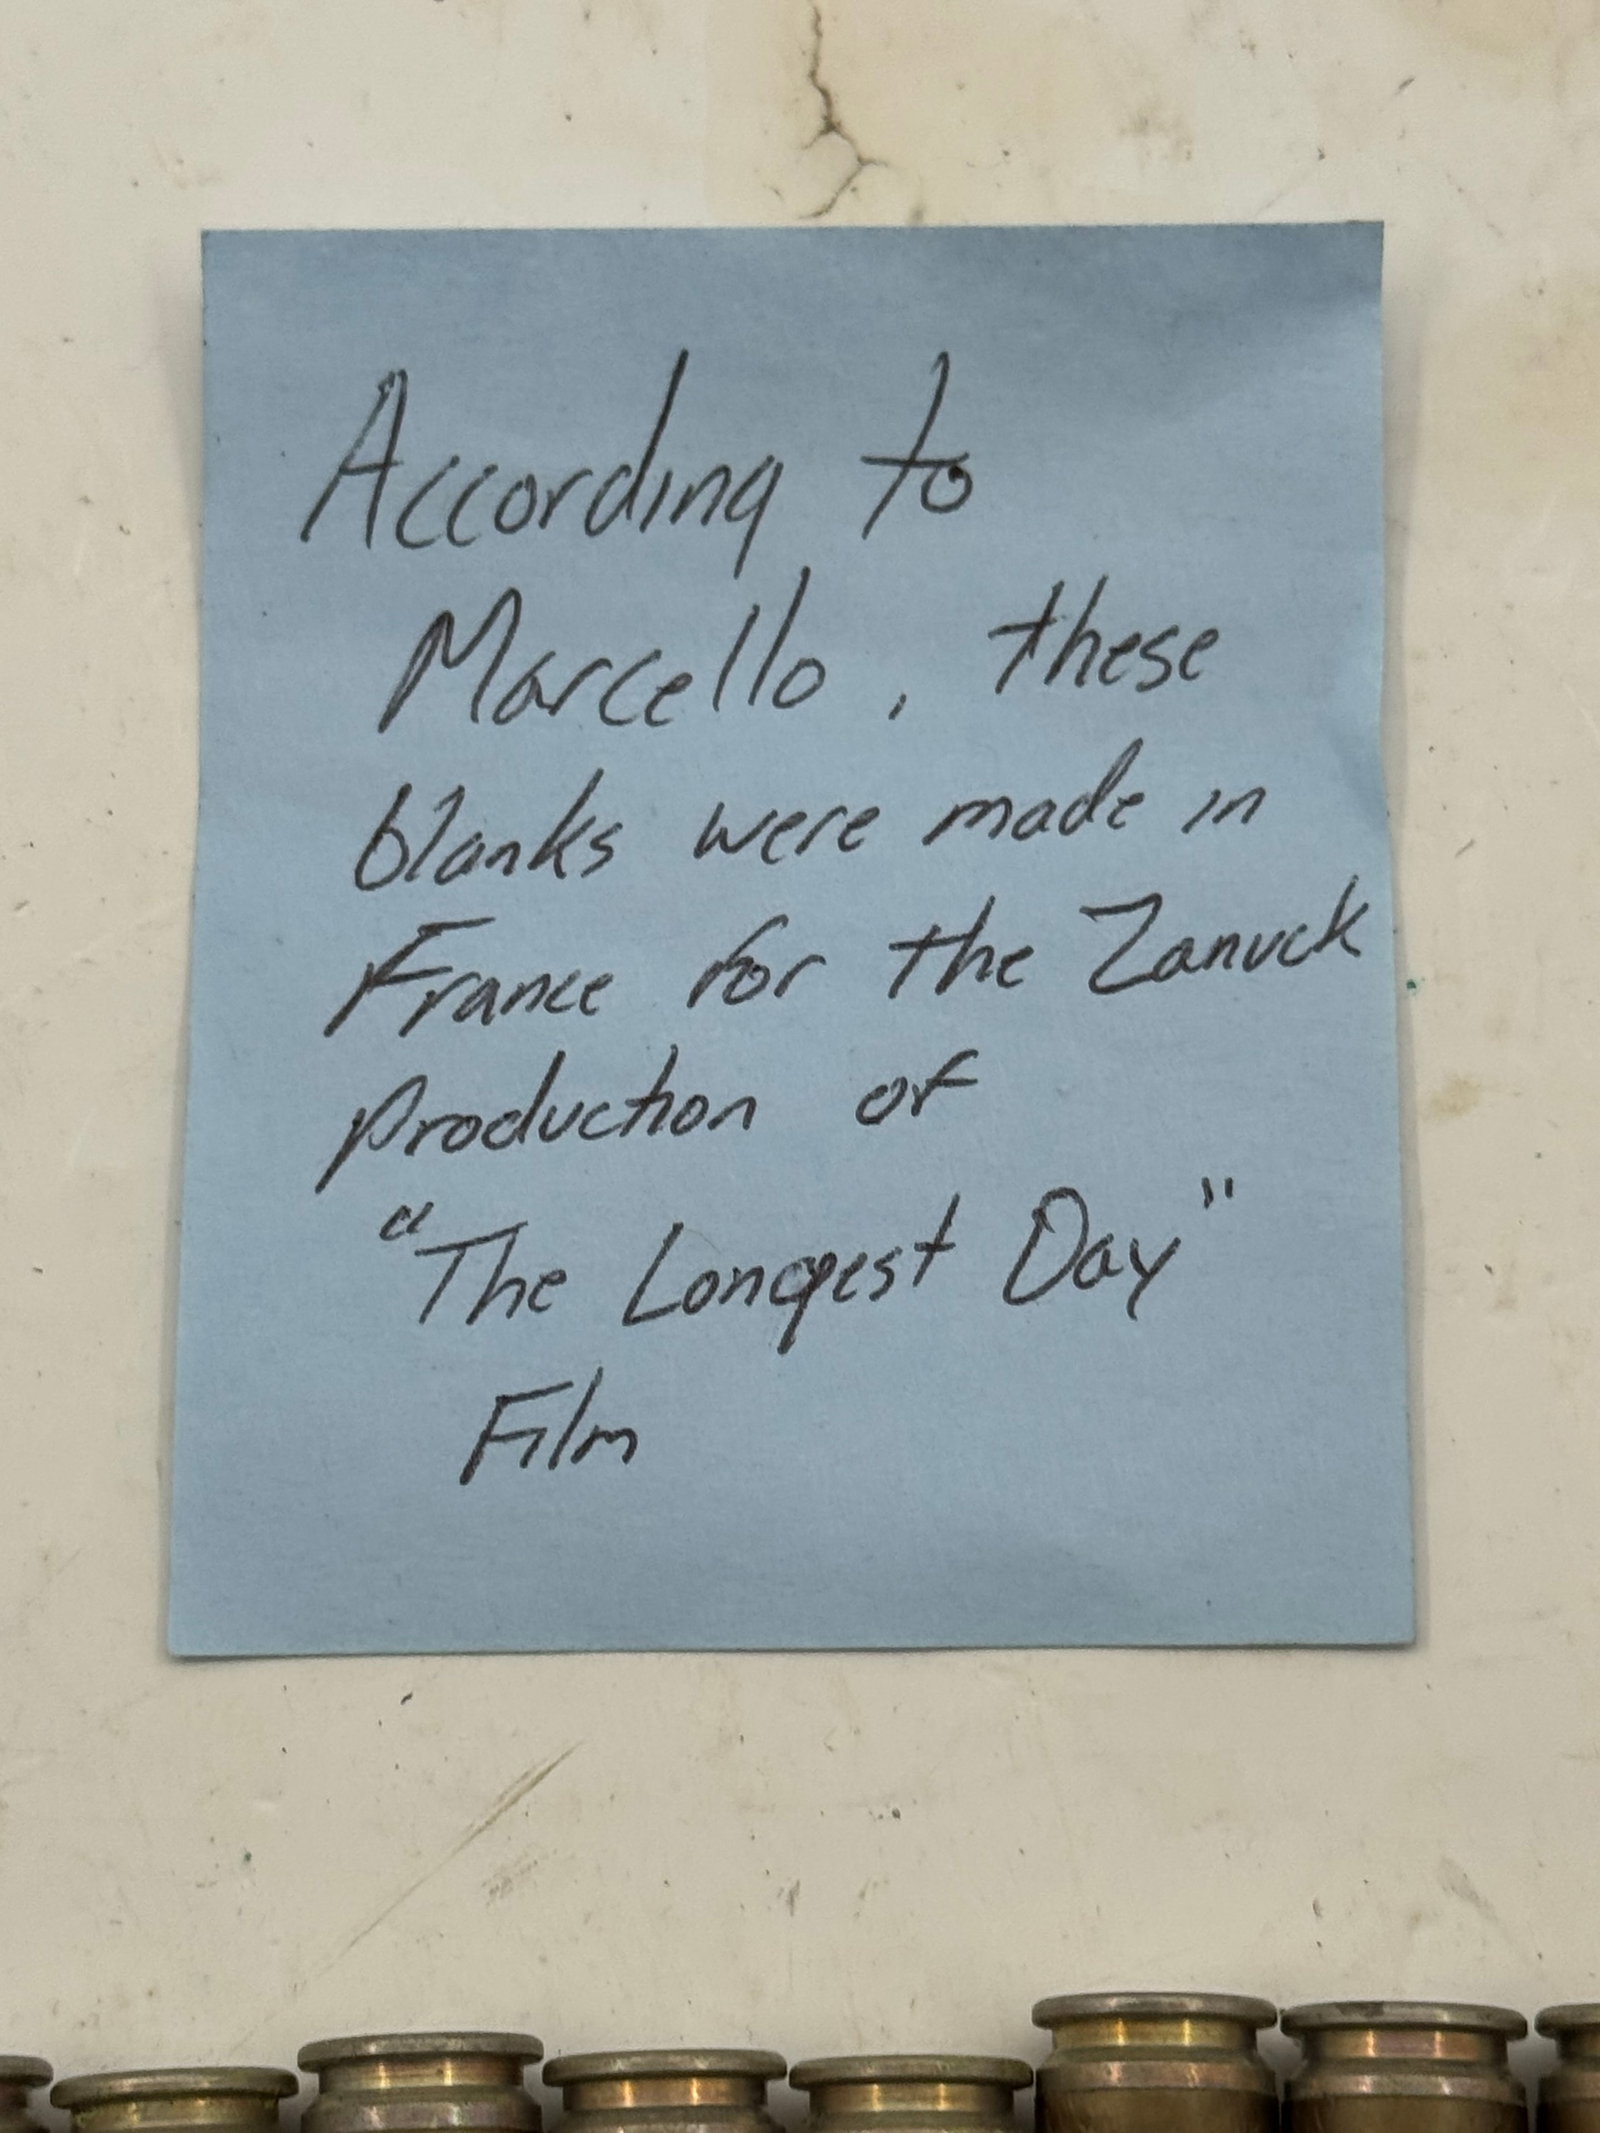 According to
Marcello, these
blanks were made in
France for the Zanuck
production of
"The Longest Day"
Film